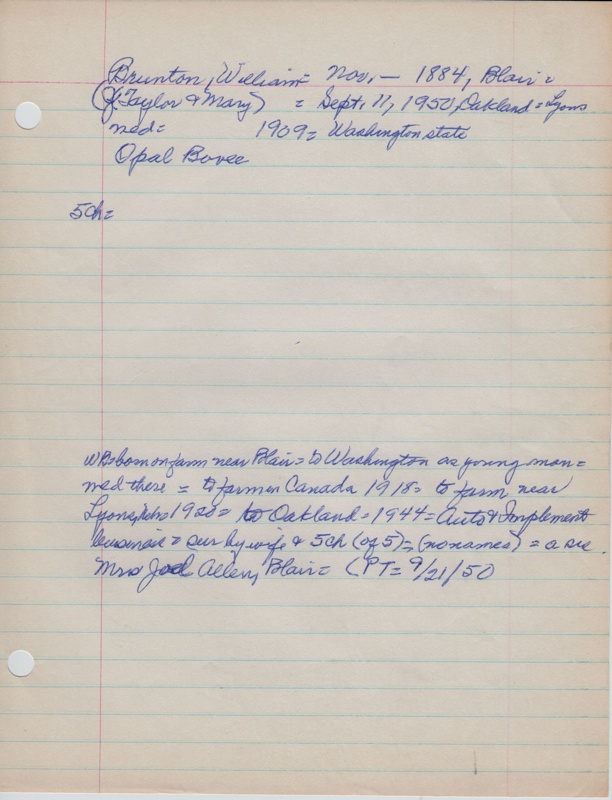 Brunton, William = Nov. — 1884, Blair =
(of Taylor & Mary) = Sept. 11, 1950, Oakland = Lyons
med = 1909 = Washington state
Opal Bovee
5ch =
WB = born on farm near Blair = to Washington as young man =
med there = to farm in Canada 1918 = to farm near
Lyons, Neb 1920 = to Oakland = 1944 = Auto & Implement
business = sur by wife & 5ch (of 5) = (no names) = a sis
Mrs Joel Allen, Blair = (PT = 9/21/50